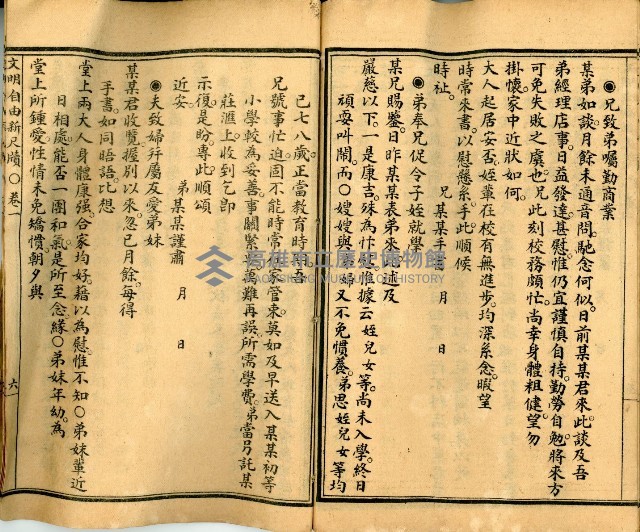 ◉兄致弟囑勤商業
某弟如談月餘未通音問馳念何似日前某某君來此談及吾
弟經理店事日益發達甚慰惟仍宜謹慎自持勤勞自勉將來方
可免失敗之虞也兄此刻校務頗忙尚幸身體粗健望勿
掛懷家中近狀如何
大人起居安否姪輩在校有無進步均深系念暇望
時常來書以慰懸系手此順候
時祉 兄某某手 月 日
◉弟奉兄促令子姪就學
某兄賜鑒日昨某某表弟來 述及
嚴慈以下一是康吉殊為忭 惟據云姪兒女等尚未入學終日
頑耍叫鬧而〇嫂嫂與 婦又不免慣養弟思姪兒女等均
已七八歲正當教育時 吾
兄號事忙迫固不能時常 家管束莫如及早送入某某初等
小學較為妥善事關緊 萬難再誤所需學費弟當另託某
莊滙上收到乞即
示復是盼專此順頌
近安 弟某某謹肅 月 日
◉夫致婦并屬友愛弟妹
某某君收覽握別以來忽已月餘每得
手書如同晤語比想
堂上兩大人身體康强合家均好藉以為慰惟不知〇弟妹輩近
日相處能否一團和氣是所至念緣〇弟妹年幼為
堂上所鍾愛性情未免矯慣朝夕與
文明自由新尺牘〇卷一 六
高雄市立歷史博物館
KAOHSIUNG MUSEUM OF HISTORY